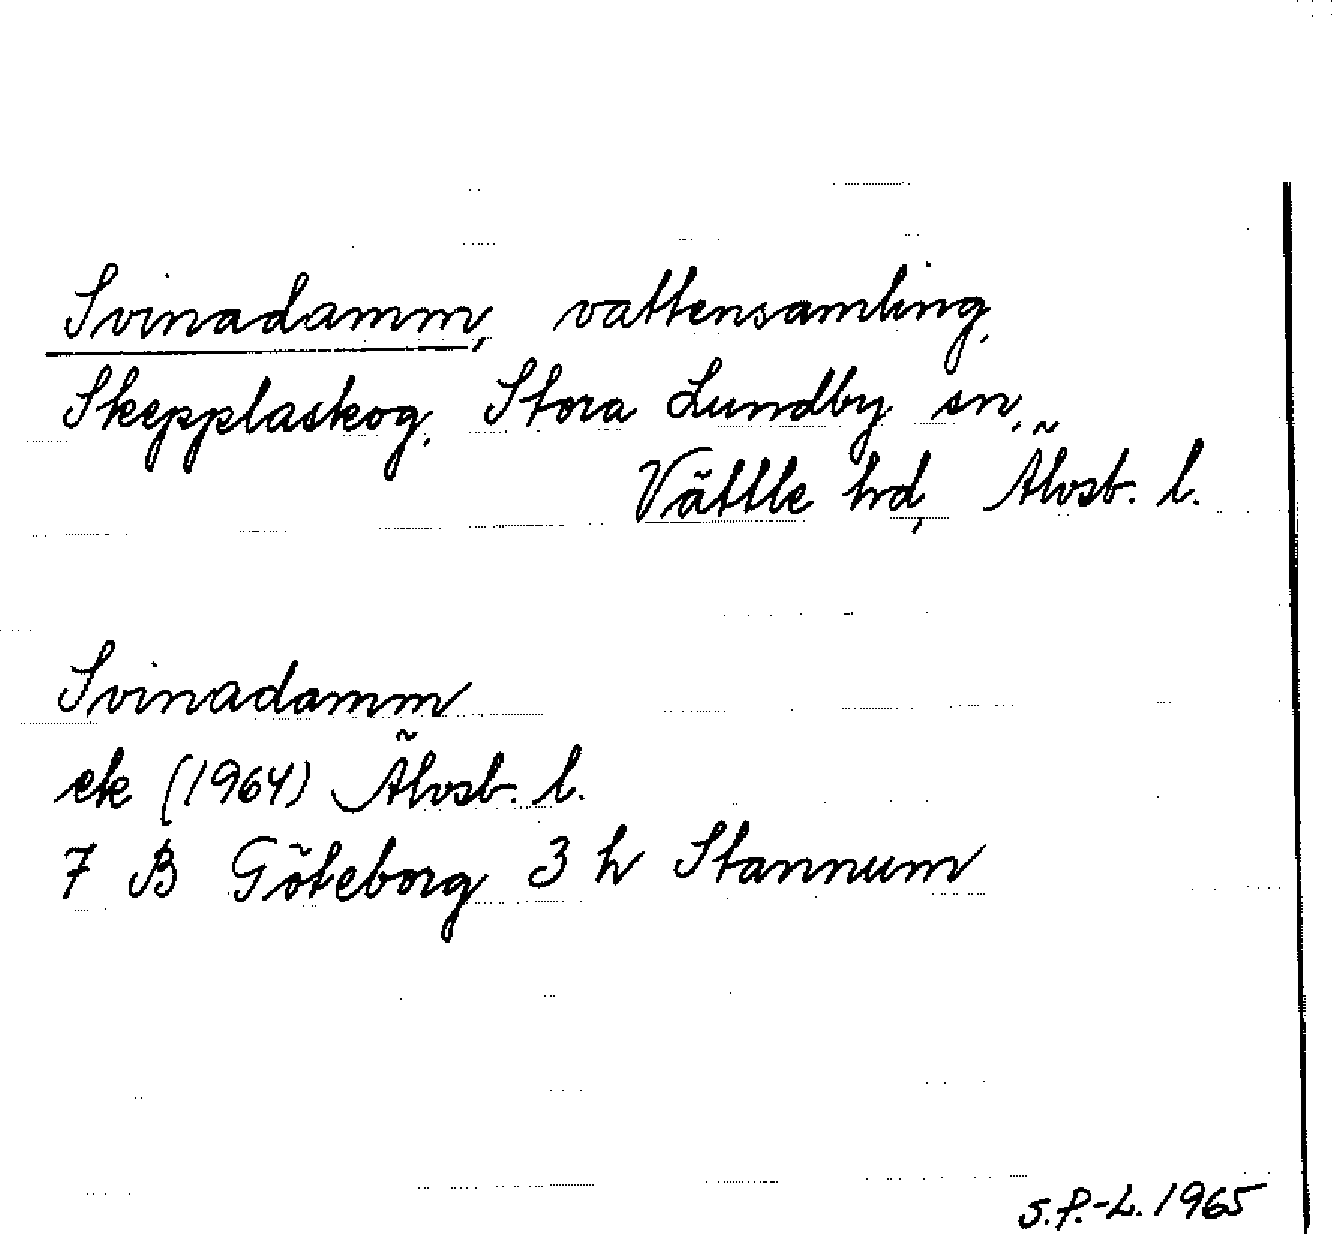 Svinadamm, vattensamling,
Skepplaskog, Stora Lundby sn,
Vättle hd, Älvsb. l.
Svinadamm
ek (1964) Älvsb. l.
7 B Göteborg 3 h Stannum
S.P.-L. 1965